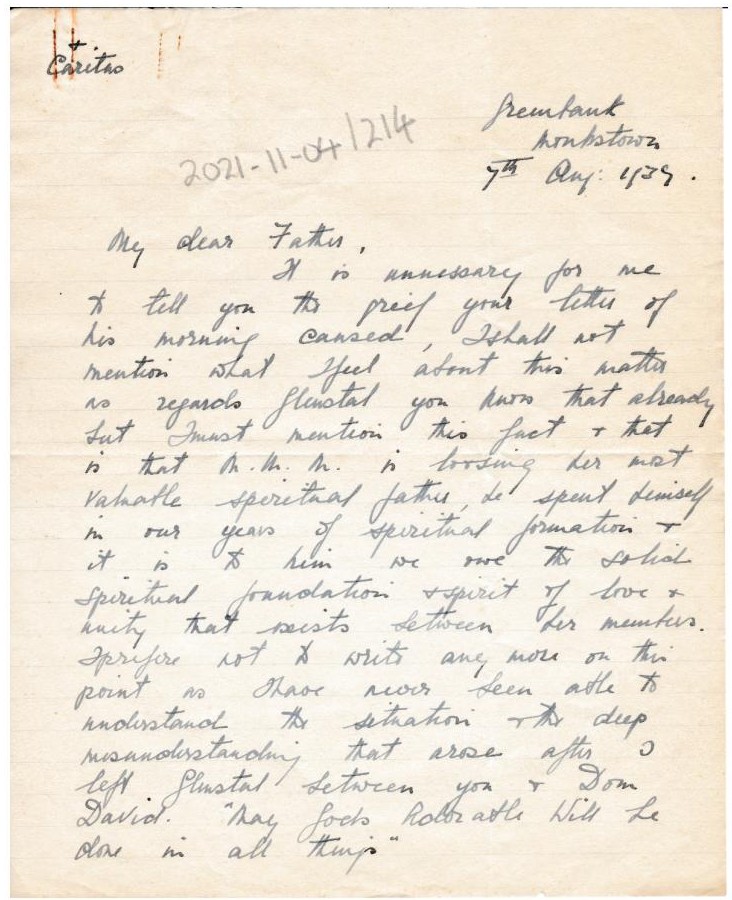 +
Caritas
Greenbank
Monkstown
7th Aug: 1937.
2021-11-04/214
My dear Father,
It is unnessary for me
to tell you the grief your letter of
his morning caused, I shall not
mention what I feel about this matter
as regards Glenstal you know that already
but I must mention this fact & that
is that M.M.M. is loosing her most
valuable spiritual father, he spent himself
in our years of spiritual formation &
it is to him we owe the solid
spiritual foundation & spirit of love &
unity that exists between her members.
I prefere not to write any more on this
point as I have never been able to
understand the situation & the deep
misunderstanding that arose after I
left Glenstal between you & Dom
David. "May Gods Adorable Will be
done in all things"